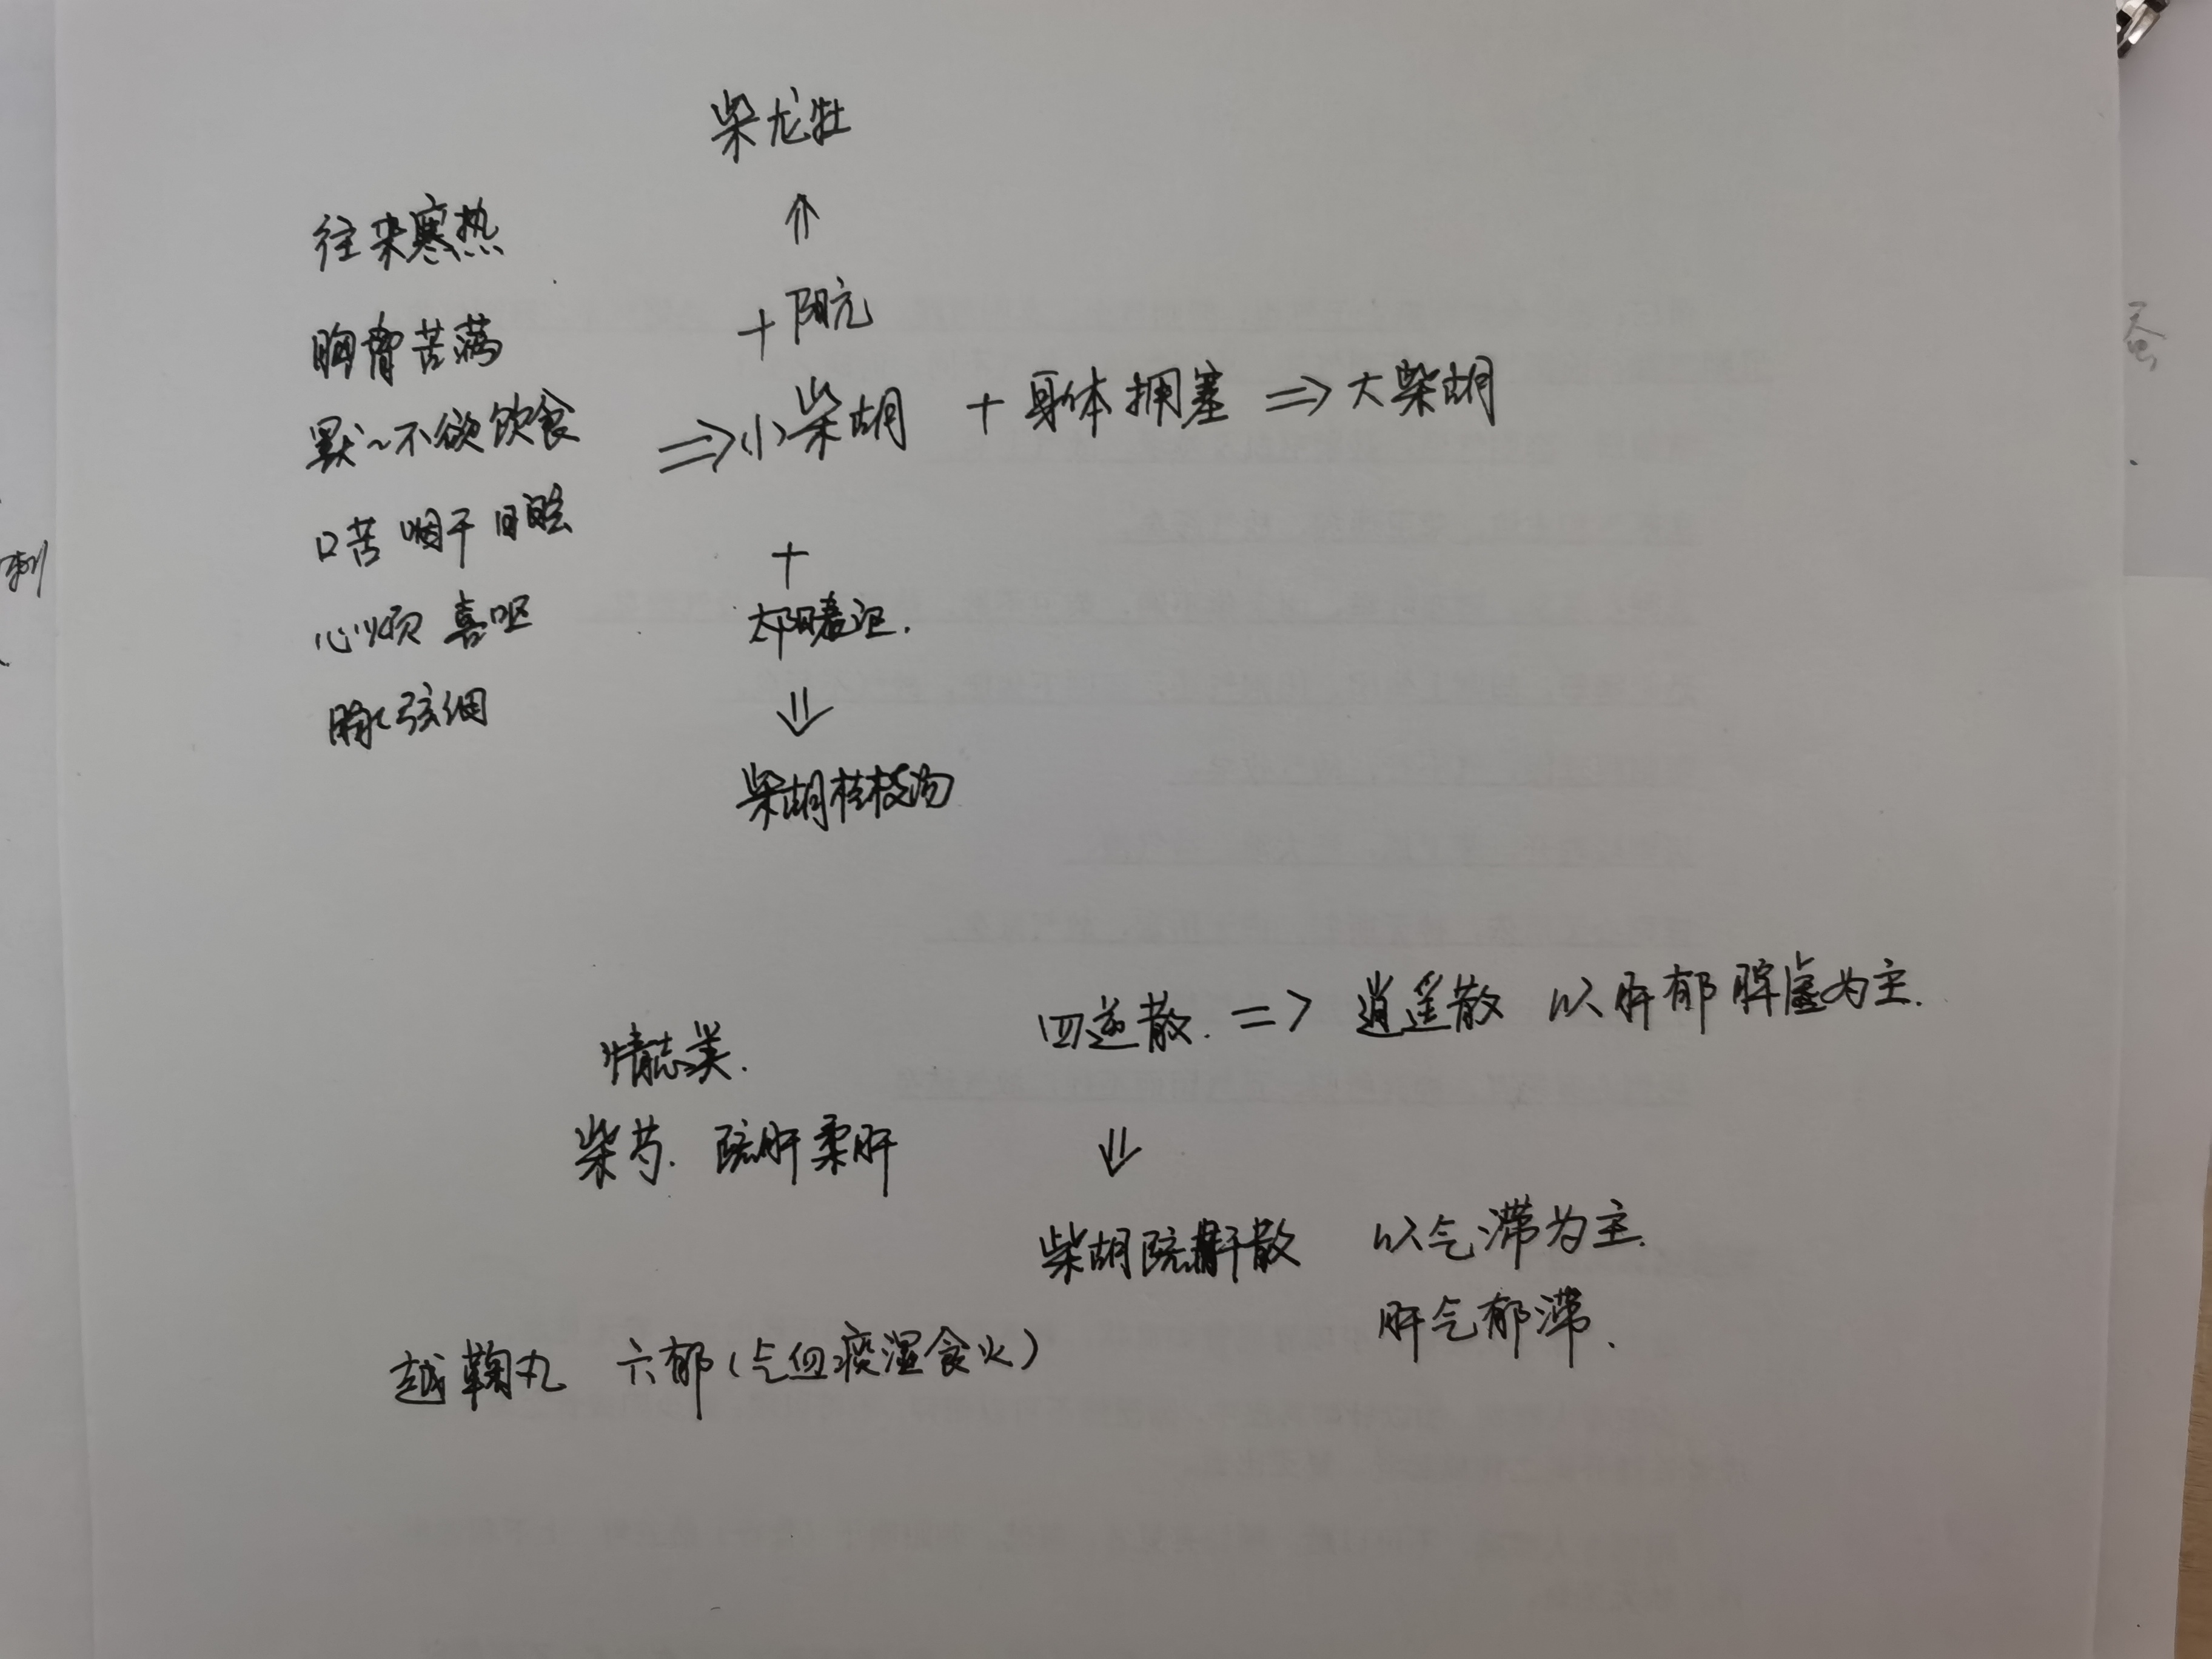 柴龙牡
⇑
+ 阳亢
往来寒热
胸胁苦满
默~不欲饮食
口苦 咽干 目眩
心烦 喜呕
脉弦细
⇒ 小柴胡 + 身体拥塞 ⇒ 大柴胡
+
太阳表证.
⇓
柴胡桂枝汤
情志类.
柴芍. 疏肝柔肝
四逆散. ⇒ 逍遥散 以肝郁脾虚为主.
⇓
柴胡疏肝散 以气滞为主.
肝气郁滞.
越鞠丸 六郁(气血痰湿食火)
刺